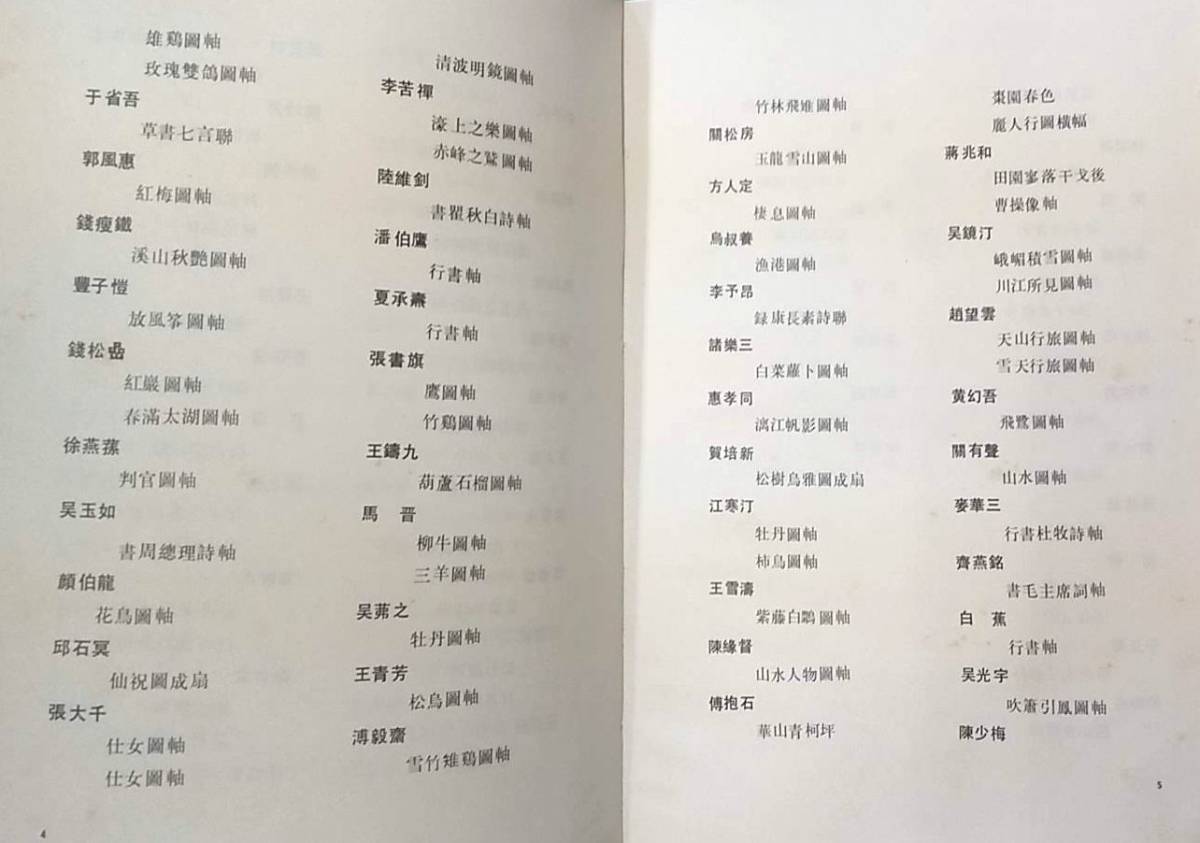 雄鷄圖軸
玫瑰雙鴿圖軸
于省吾
草書七言聯
郭風惠
紅梅圖軸
錢瘦鐵
溪山秋艷圖軸
豐子愷
放風筝圖軸
錢松嵒
紅巖圖軸
春滿太湖圖軸
徐燕蓀
判官圖軸
吴玉如
書周總理詩軸
顔伯龍
花鳥圖軸
邱石冥
仙祝圖成扇
張大千
仕女圖軸
仕女圖軸
4
清波明鏡圖軸
李苦禪
濠上之樂圖軸
赤峰之鷲圖軸
陸維釗
書瞿秋白詩軸
潘伯鷹
行書軸
夏承燾
行書軸
張書旗
鷹圖軸
竹鷄圖軸
王鑄九
葫蘆石榴圖軸
馬晋
柳牛圖軸
三羊圖軸
吴茀之
牡丹圖軸
王青芳
松鳥圖軸
溥毅齋
雪竹雉鷄圖軸
竹林飛雉圖軸
關松房
玉龍雪山圖軸
方人定
棲息圖軸
烏叔養
漁港圖軸
李予昂
録康長素詩聯
諸樂三
白菜蘿卜圖軸
惠孝同
漓江帆影圖軸
賀培新
松樹烏雅圖成扇
江寒汀
牡丹圖軸
柿鳥圖軸
王雪濤
紫藤白鷴圖軸
陳緣督
山水人物圖軸
傅抱石
華山青柯坪
棗園春色
麗人行圖橫幅
蔣兆和
田園寥落干戈後
曹操像軸
吴鏡汀
峨嵋積雪圖軸
川江所見圖軸
趙望雲
天山行旅圖軸
雪天行旅圖軸
黄幻吾
飛鷺圖軸
關有聲
山水圖軸
麥華三
行書杜牧詩軸
齊燕銘
書毛主席詞軸
白蕉
行書軸
吴光宇
吹簫引鳳圖軸
陳少梅
5